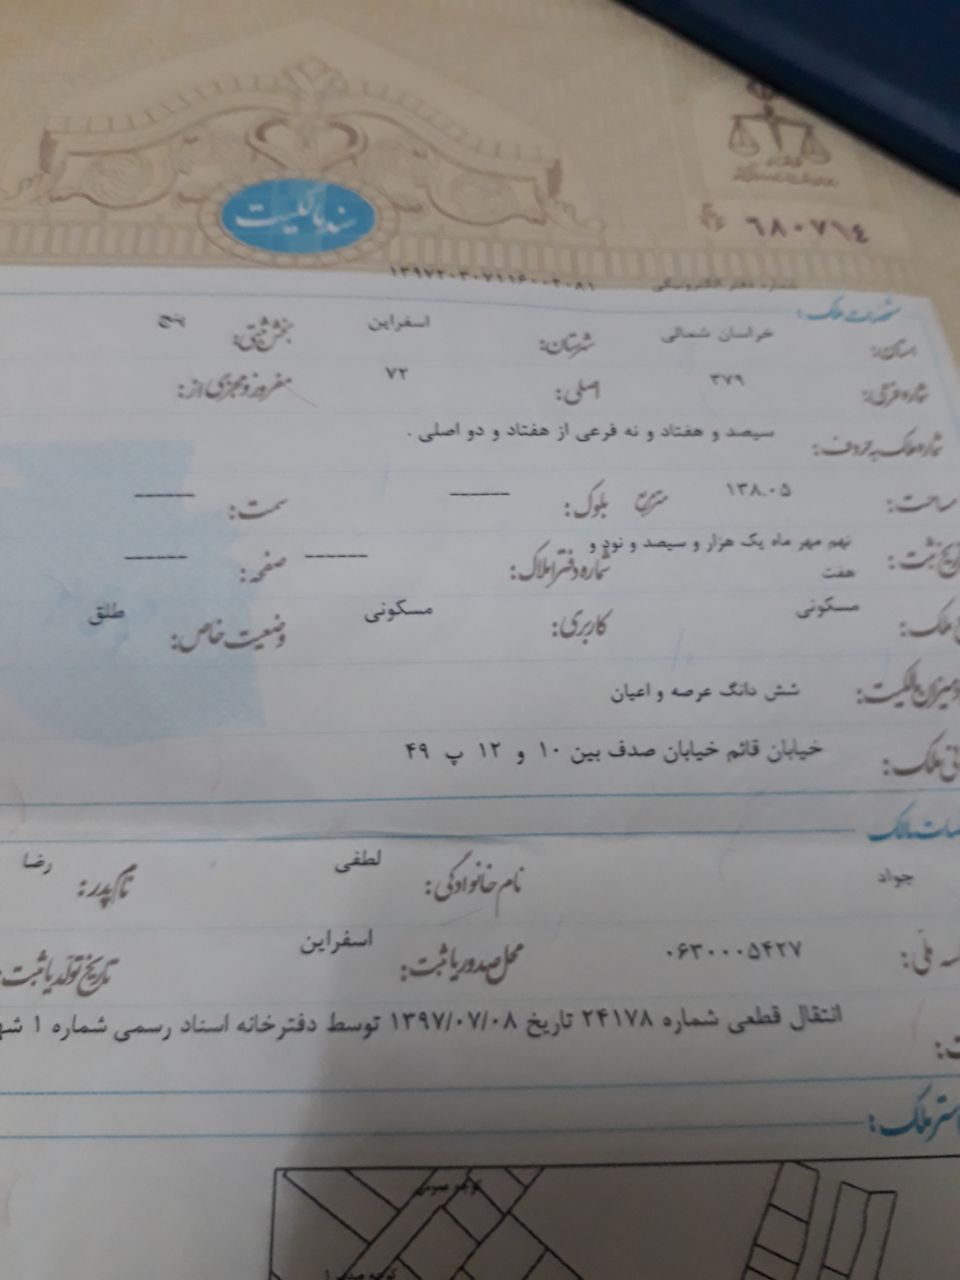 سند مالکیت
۶۸۰۷۱٤
شماره دفتر الکترونیکی ۱۳۹۷۲۰۳۰۷۱۱۶۰۰۲۰۸۱
مشخصات ملک:
استان: خراسان شمالی شهرستان: اسفراین بخش ثبتی: پنج
شماره فرعی: ۳۷۹ اصلی: ۷۲ مفروز و مجزی از:
شماره ملک به حروف: سیصد و هفتاد و نه فرعی از هفتاد و دو اصلی .
مساحت: ۱۳۸.۰۵ مترمربع بلوک: ------ سمت: ------
تاریخ ثبت: نهم مهر ماه یک هزار و سیصد و نود و هفت شماره دفتر املاک: ------ صفحه: ------
نوع ملک: مسکونی کاربری: مسکونی وضعیت خاص: طلق
میزان مالکیت: شش دانگ عرصه و اعیان
ملک: خیابان قائم خیابان صدف بین ۱۰ و ۱۲ پ ۴۹
مالک
جواد نام خانوادگی: لطفی نام پدر: رضا
ملی: ۰۶۳۰۰۰۵۴۲۷ محل صدور یا ثبت: اسفراین تاریخ تولد یا ثبت:
انتقال قطعی شماره ۲۴۱۷۸ تاریخ ۱۳۹۷/۰۷/۰۸ توسط دفترخانه اسناد رسمی شماره ۱
ملک:
کوچه عمومی